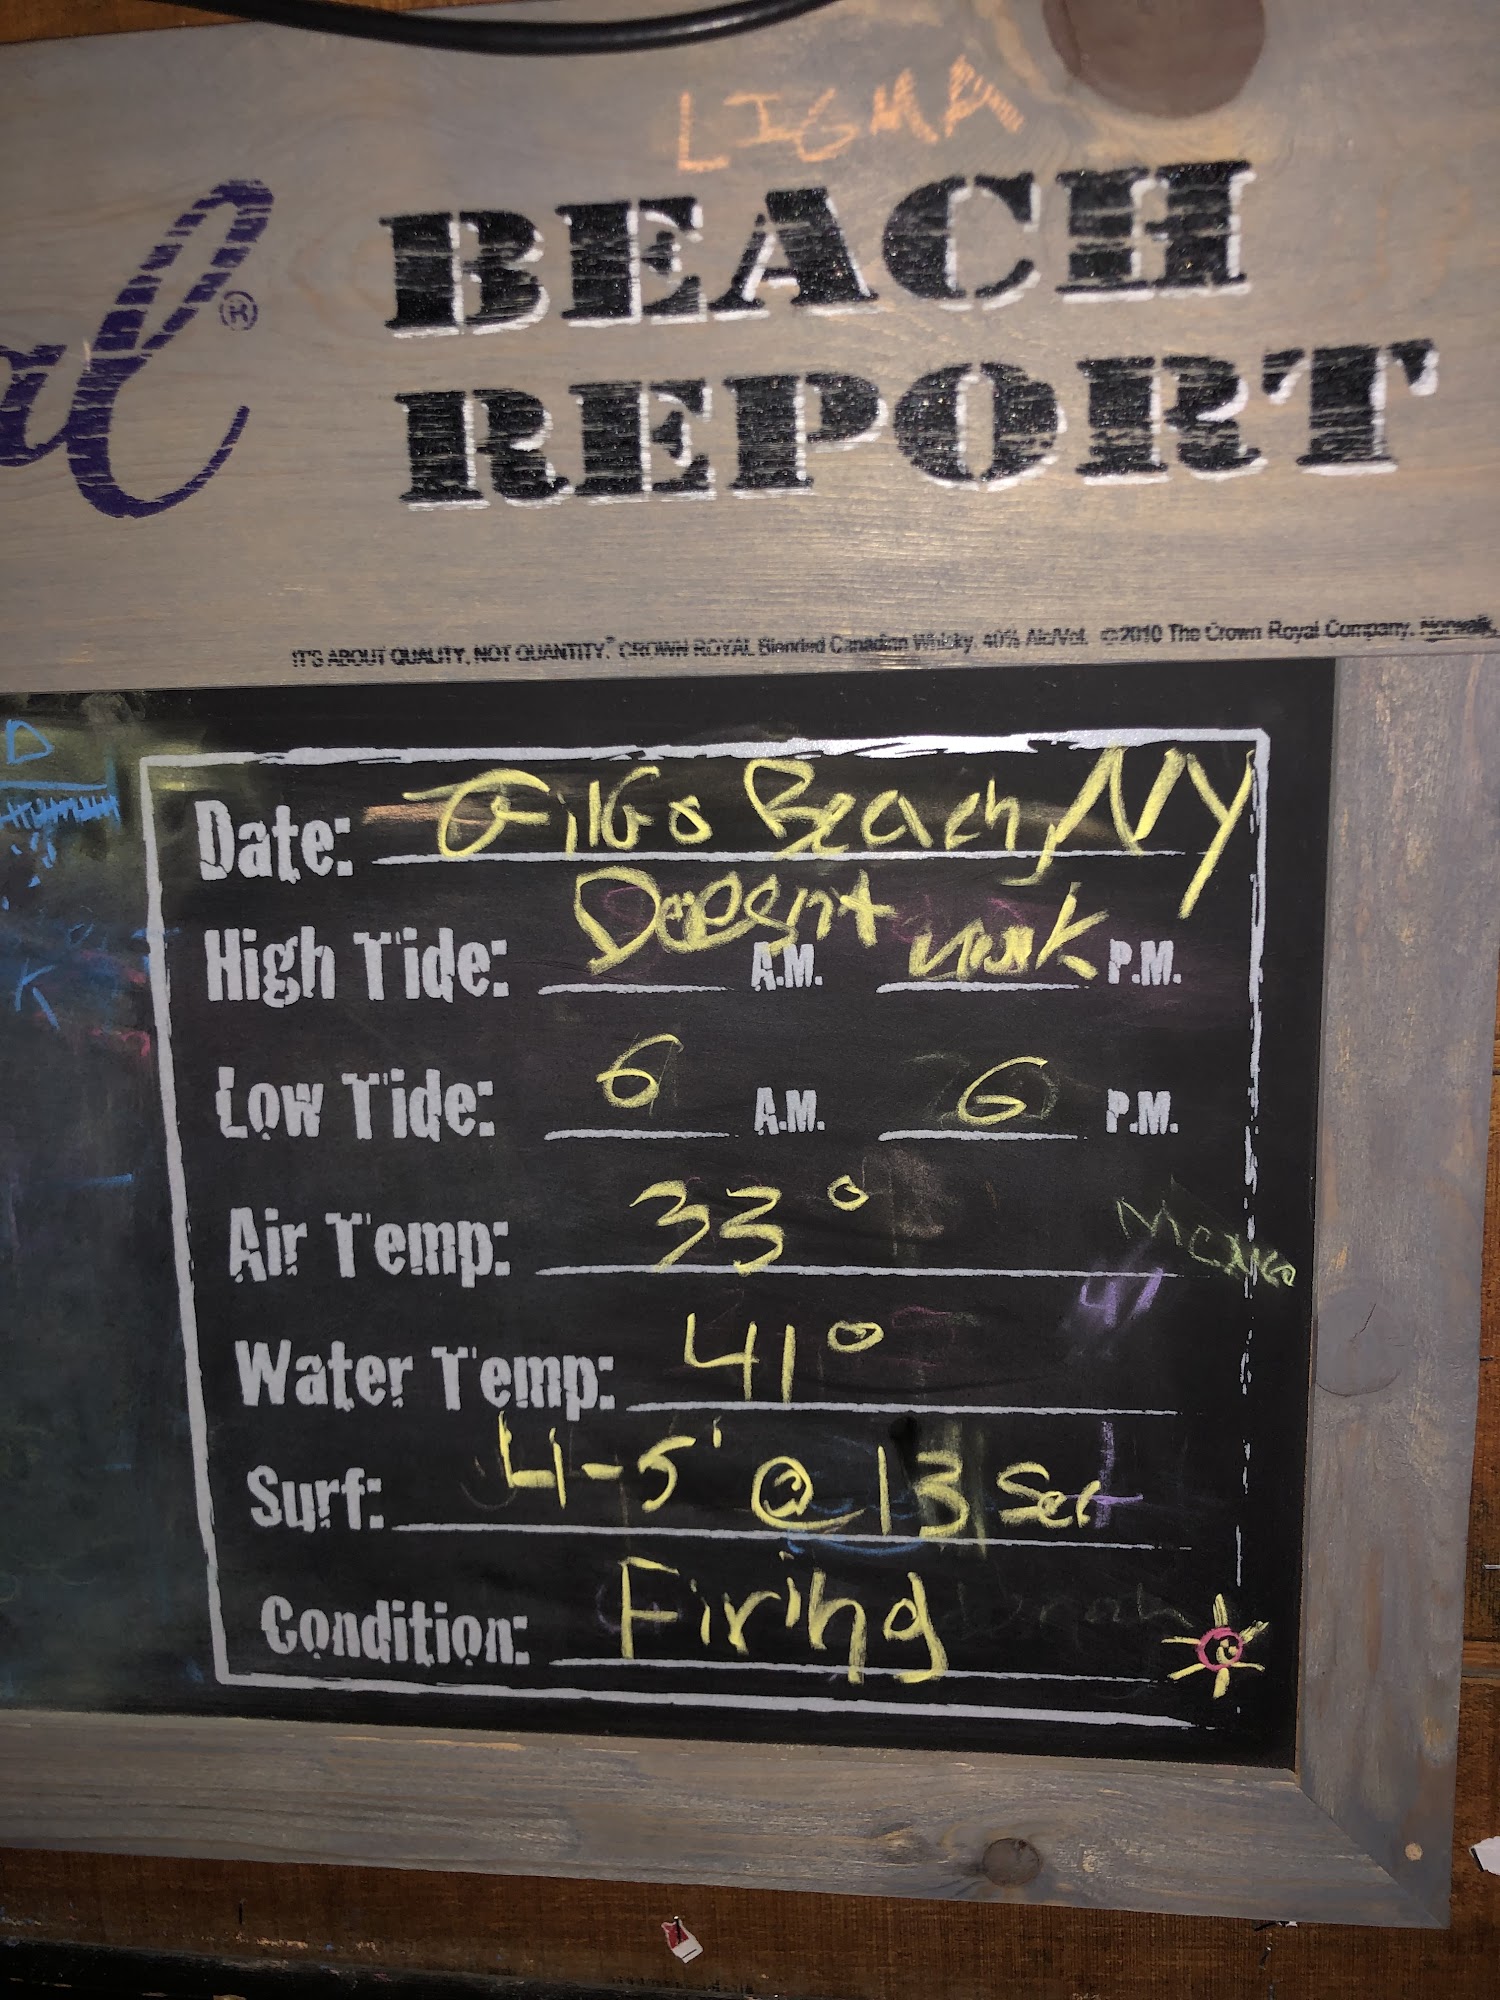 LIGMA
al® BEACH
REPORT
IT'S ABOUT QUALITY, NOT QUANTITY.® CROWN ROYAL Blended Canadian Whisky. 40% Alc/Vol. ©2010 The Crown Royal Company. Norwalk,
D
Date: GilGo Beach, NY
High Tide: Doesnt A.M. work P.M.
K
Low Tide: 6 A.M. 6 P.M.
Air Temp: 33°
Mexico
41
Water Temp: 41°
Surf: 4-5' @ 13 Sec
Condition: Firing